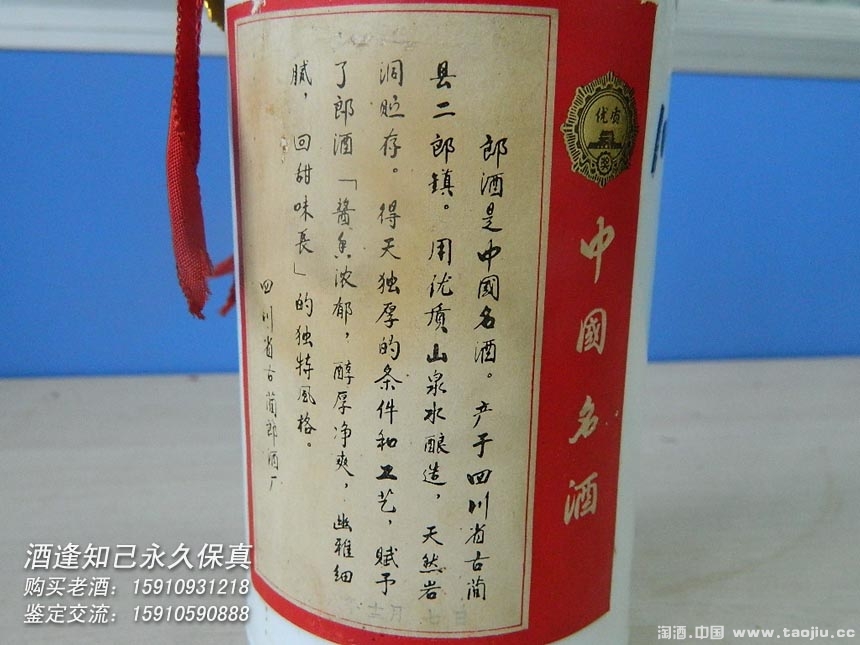 郎酒是中國名酒。产于四川省古蔺
县二郎镇。用优质山泉水酿造，天然岩
洞贮存。得天独厚的条件和工艺，赋予
了郎酒「醬香浓郁，醇厚净爽，幽雅细
腻，回甜味長」的独特風格。
四川省古蔺郎酒厂
十二月 七日
优质
奖
中國名酒
酒逢知己永久保真
购买老酒：15910931218
鉴定交流：15910590888
淘酒.中国 www.taojiu.cc